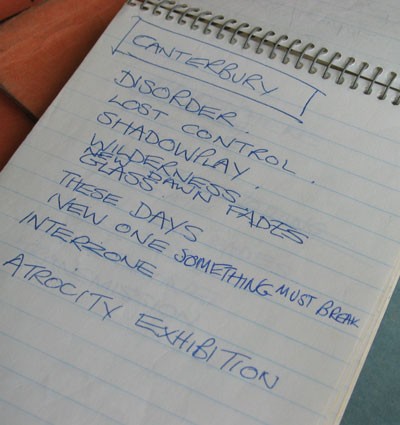 CANTERBURY
DISORDER.
LOST CONTROL.
SHADOWPLAY.
WILDERNESS.
NEW DAWN FADES
GLASS
THESE DAYS
NEW ONE SOMETHING MUST BREAK
INTERZONE
ATROCITY EXHIBITION